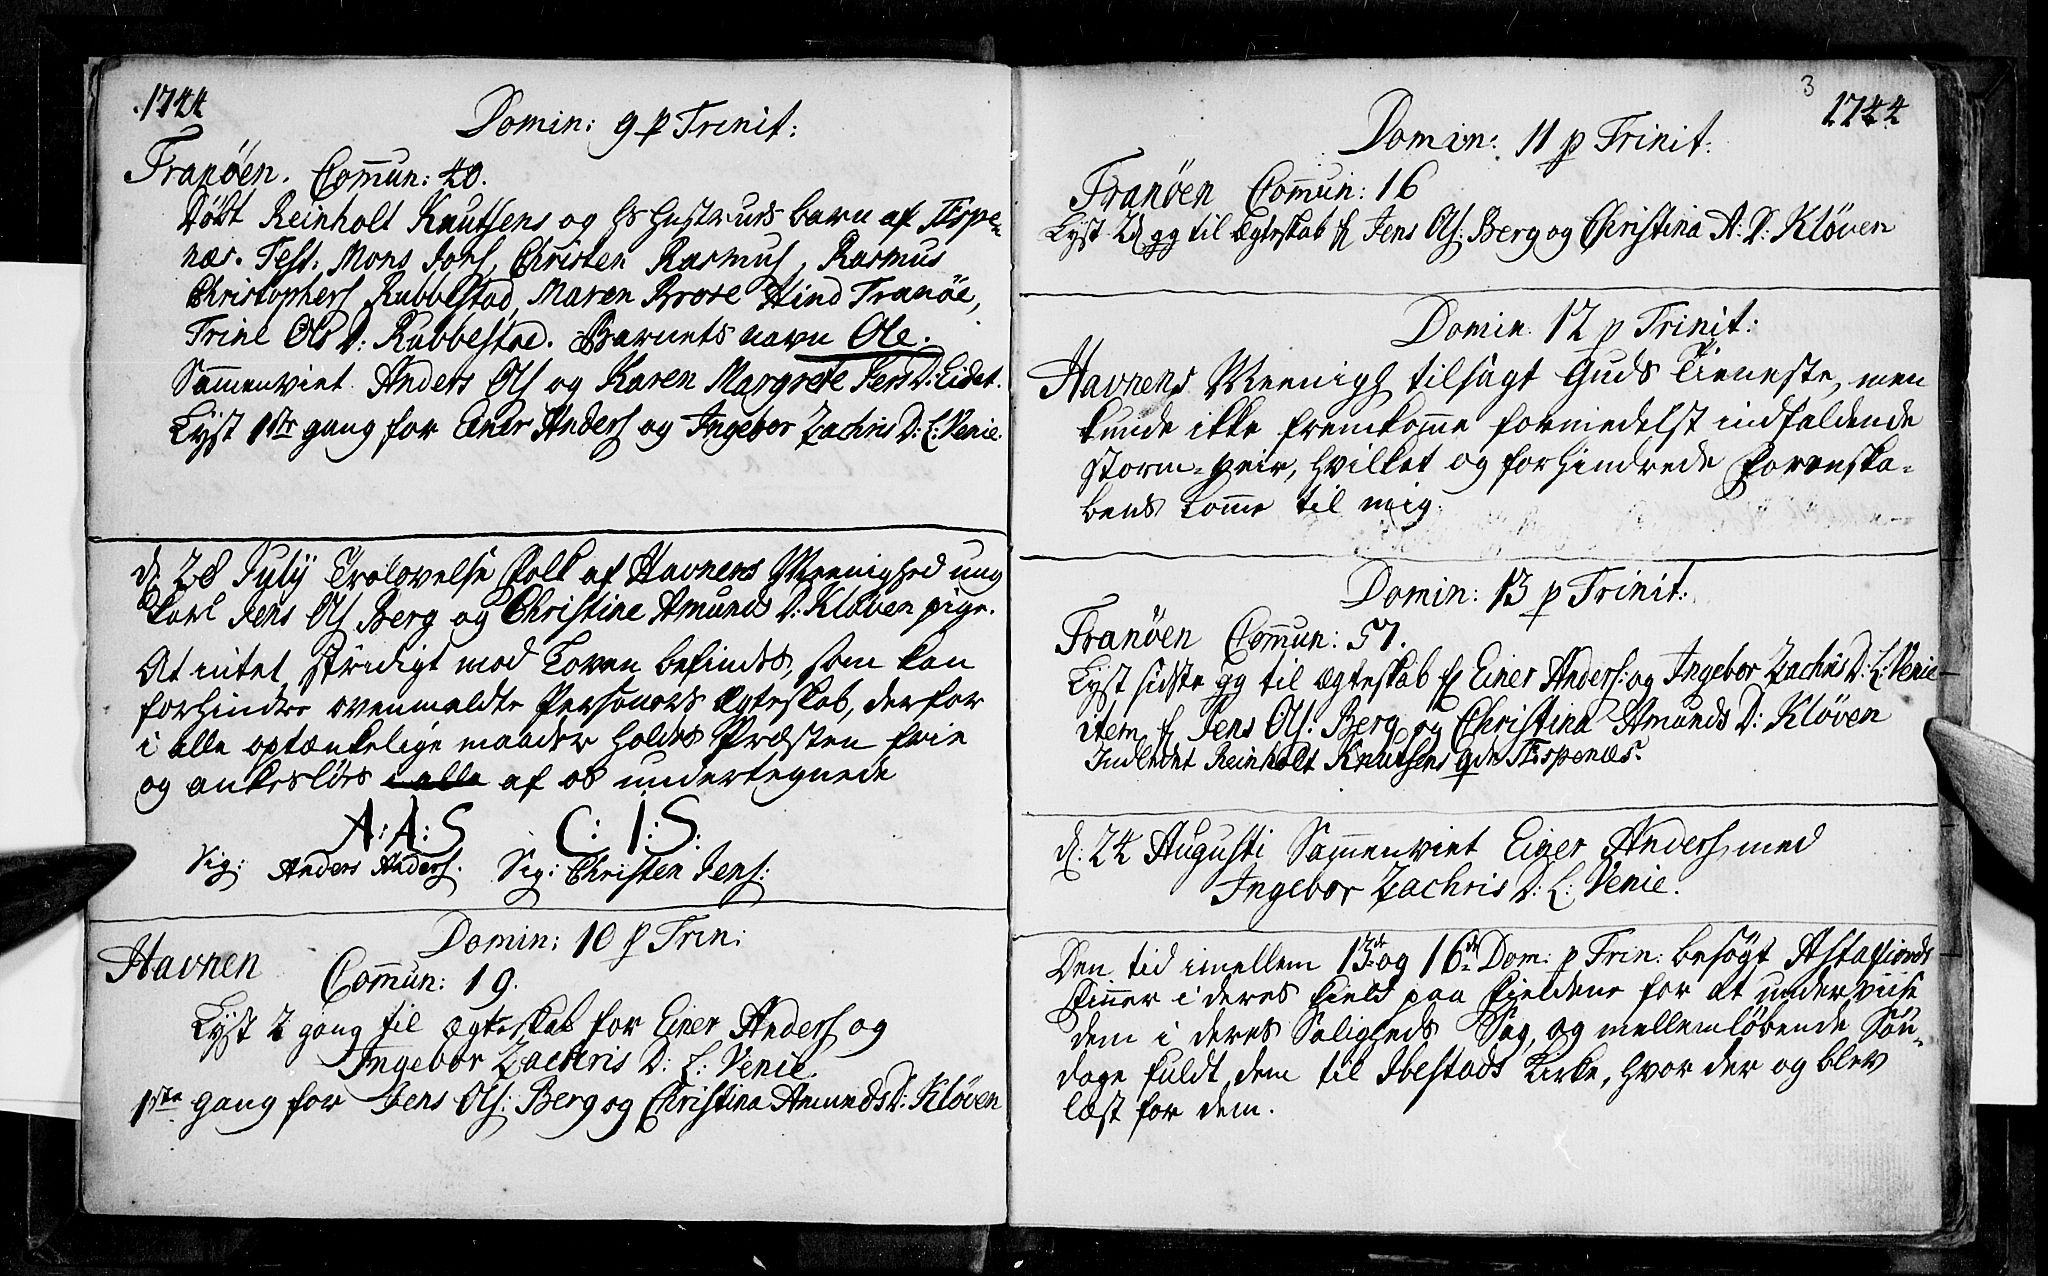 1744
Domin: 9 p Trinit:
Tranöen. Com̄un: 40.
Döbt Reinholt Knutsens og hs Hustrues barn af Espe-
næs. Test: Mons Jons, Christen Rasmus, Rasmus
Christophers Rubbestad, Maren Brose Hind Tranöe,
Trine Ols D: Rubbestad. Barnets navn Ole.
Sammenviet Anders Ols og Karen Margrete Jens D: Eidet.
Lyst 1ste gang for Einer Anders og Ingebor Zachris D: L: Venie.
d. 28 July Trolovelse Folk af Havnens Meenighed ung
karl Jens Ols Berg og Christine Amunds D: Klöven pige.
At intet stridigt mod Loven befindes, som kan
forhindre ovenmeldte Personers Ægteskab, derfor
i alle optænkelige maader holdes Præsten frie
og ankeslös i alle af os undertegnede
A: A: S C: I: S:
Sig: Anders Anders. Sig: Christen Jens:
Domin: 10 p Trin:
Havnen Com̄un: 19.
Lyst 2 gang til Ægteskab for Einer Anders og
Ingebor Zachris D: L: Venie.
1ste gang for Jens Ols: Berg og Christina Amunds D: Klöven
3
1744
Domin: 11 p Trinit:
Tranöen Com̄un: 16
Lyst 2d gg til Ægteskab f Jens Ols: Berg og Christina A: D: Klöven
Domin: 12 p Trinit:
Havnens Meenigh tilsagt Guds Tieneste, men
kunde ikke fremkom̄e formedelst indfaldende
storm-veir, hvilket og forhindrede
bens kom̄e til mig.
Domin: 13 p Trinit:
Tranöen Com̄un: 57.
Lyst sidste gg til Ægteskab f Einer Anders: og Ingebor Zachris D: L: Venie
item f Jens Ols: Berg og Christina Amunds D: Klöven
Indledet Reinholt Knutsens qde Espenæs.
d. 24 Augusti Sam̄enviet Einer Anders med
Ingebor Zachris D: L: Venie.
Den tid imellem 13de og 16de Dom: p Trin: besögt Astafiords
Finner i deres field paa Fieldene for at underviise
dem i deres Saligheds Sag, og mellemlöbende Sön-
dage fuldt dem til Ibestads Kirke, hvor der og blev
læst for dem.